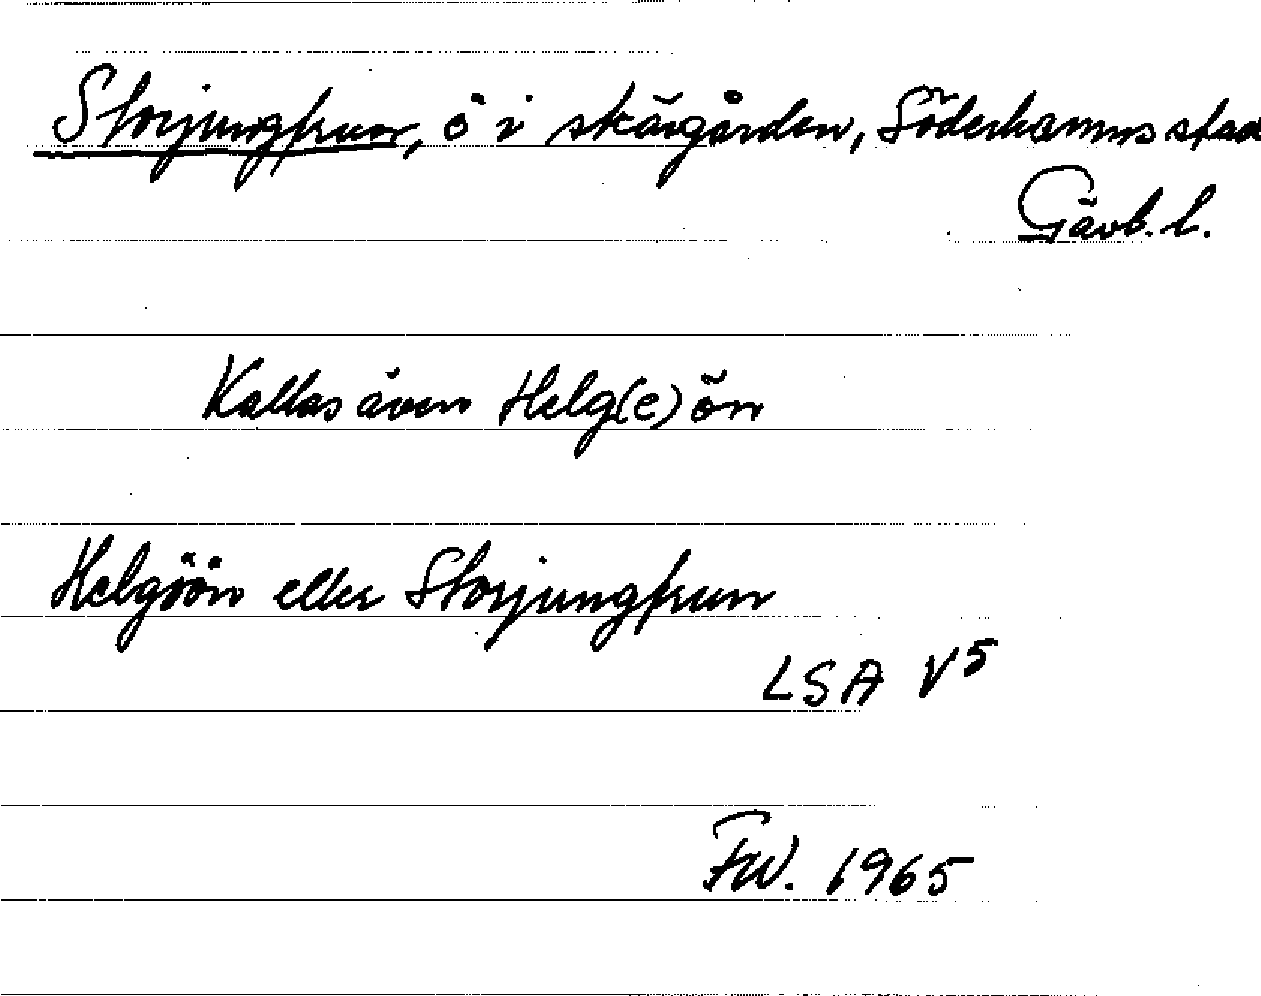 Storjungfrun, ö i skärgården, Söderhamns stad
Gävb. l.
Kallas även Helg(e)ön
Helgöön eller Storjungfrun
LSA V5
FW. 1965